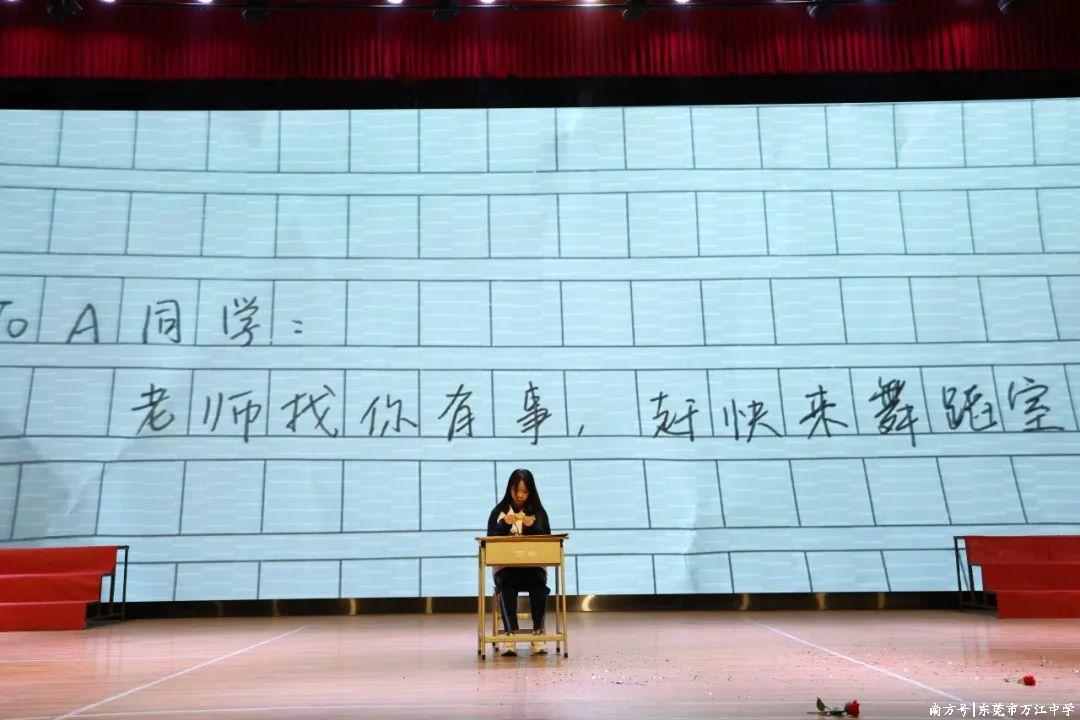 To A 同学：
老师找你有事，赶快来舞蹈室
南方号|东莞市万江中学